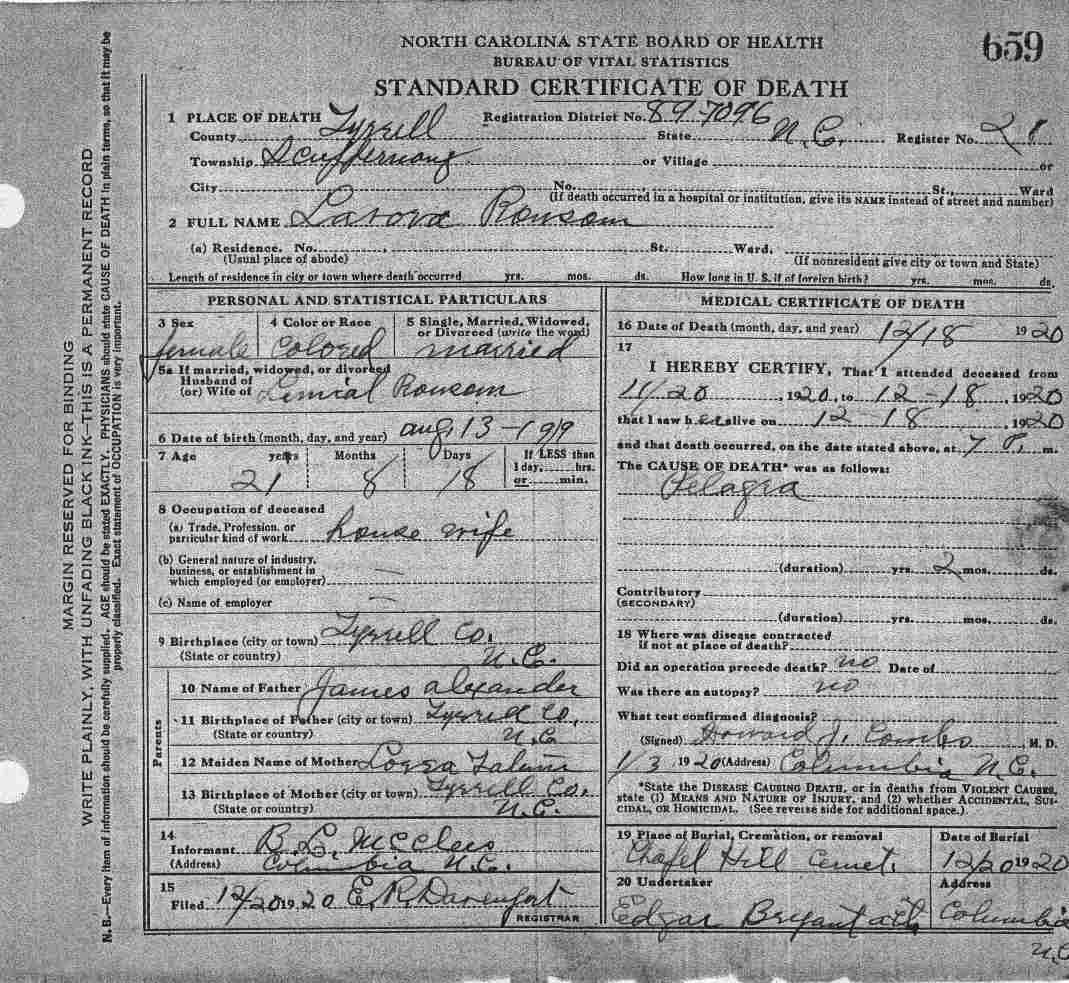 659
NORTH CAROLINA STATE BOARD OF HEALTH
BUREAU OF VITAL STATISTICS
STANDARD CERTIFICATE OF DEATH
1 PLACE OF DEATH Registration District No. 89-7096
County Tyrrell State N.C. Register No. 28
Township Scuppernong or Village or
City No. St., Ward
(If death occurred in a hospital or institution, give its NAME instead of street and number)
2 FULL NAME Lavova Rowsom
(a) Residence. No. St. Ward.
(Usual place of abode) (If nonresident give city or town and State)
Length of residence in city or town where death occurred yrs. mos. ds. How long in U. S. if of foreign birth? yrs. mos. ds.
PERSONAL AND STATISTICAL PARTICULARS
3 Sex 4 Color or Race 5 Single, Married, Widowed, or Divorced (write the word)
female Colored married
5a If married, widowed, or divorced
Husband of
(or) Wife of Rowsom
6 Date of birth (month, day, and year) aug 13-199
7 Age years Months Days If LESS than 1 day, hrs. or min.
21 8 18
8 Occupation of deceased
(a) Trade, Profession, or particular kind of work house wife
(b) General nature of industry, business, or establishment in which employed (or employer) —
(c) Name of employer —
9 Birthplace (city or town) Tyrrell Co.
(State or country) N.C.
Parents
10 Name of Father James alexander
11 Birthplace of Father (city or town) Tyrrell Co.
(State or country) N.C
12 Maiden Name of Mother
13 Birthplace of Mother (city or town) Tyrrell Co.
(State or country) N.C.
14
Informant B.L. McClees
(Address) Columbia N.C.
15
Filed 12/20 19 20 E.R. Davenport
REGISTRAR
MEDICAL CERTIFICATE OF DEATH
16 Date of Death (month, day, and year) 12/18 1920
17
I HEREBY CERTIFY, That I attended deceased from
11/20, 1920, to 12-18, 1920
that I saw her alive on 12 18, 1920
and that death occurred, on the date stated above, at 7 P. m.
The CAUSE OF DEATH* was as follows:
Pelagra
(duration) yrs. 2 mos. ds.
Contributory
(SECONDARY)
(duration) yrs. mos. ds.
18 Where was disease contracted
if not at place of death?
Did an operation precede death? no Date of
Was there an autopsy? no
What test confirmed diagnosis?
(Signed) Howard J. Combs, M. D.
1/3 1920 (Address) Columbia N.C.
*State the DISEASE CAUSING DEATH, or in deaths from VIOLENT CAUSES,
state (1) MEANS AND NATURE OF INJURY, and (2) whether ACCIDENTAL, SUI-
CIDAL, OR HOMICIDAL. (See reverse side for additional space.)
19 Place of Burial, Cremation, or removal Date of Burial
Chapel Hill Cemet. 12/20 1920
20 Undertaker Address
Edgar Bryant Columbia
N.C
MARGIN RESERVED FOR BINDING
WRITE PLAINLY, WITH UNFADING BLACK INK—THIS IS A PERMANENT RECORD
N. B.—Every item of information should be carefully supplied. AGE should be stated EXACTLY. PHYSICIANS should state CAUSE OF DEATH in plain terms, so that it may be
properly classified. Exact statement of OCCUPATION is very important.